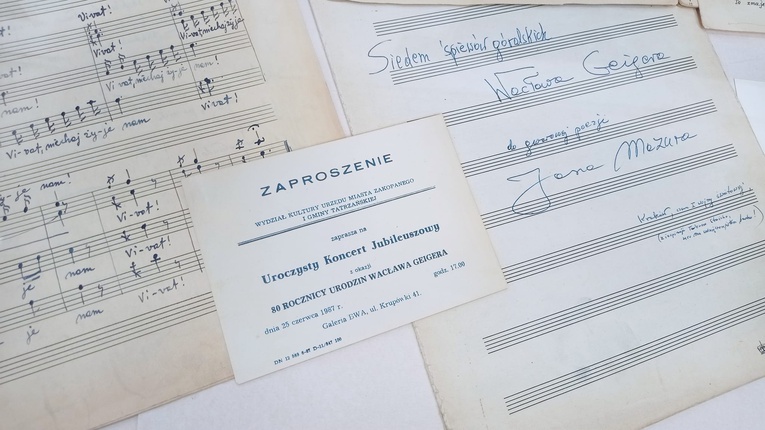 Vivat!
Vi-vat, niechaj ży-je
Vivat!
Vivat, niechaj ży-je nam!
nam!
Vivat!
Vi-vat, niechaj ży-je nam
je nam!
Vi-vat!
je
nam
Vi-vat!
je
nam
Vi-vat!
ZAPROSZENIE
WYDZIAŁ KULTURY URZĘDU MIASTA ZAKOPANEGO
I GMINY TATRZAŃSKIEJ
zaprasza na
Uroczysty Koncert Jubileuszowy
z okazji
80 ROCZNICY URODZIN WACŁAWA GEIGERA
dnia 25 czerwca 1987 r.
godz. 17.00
Galeria BWA, ul. Krupówki 41.
Siedem śpiewów góralskich
Wacława Geigera
do gwarowej poezji
Jana Mazura